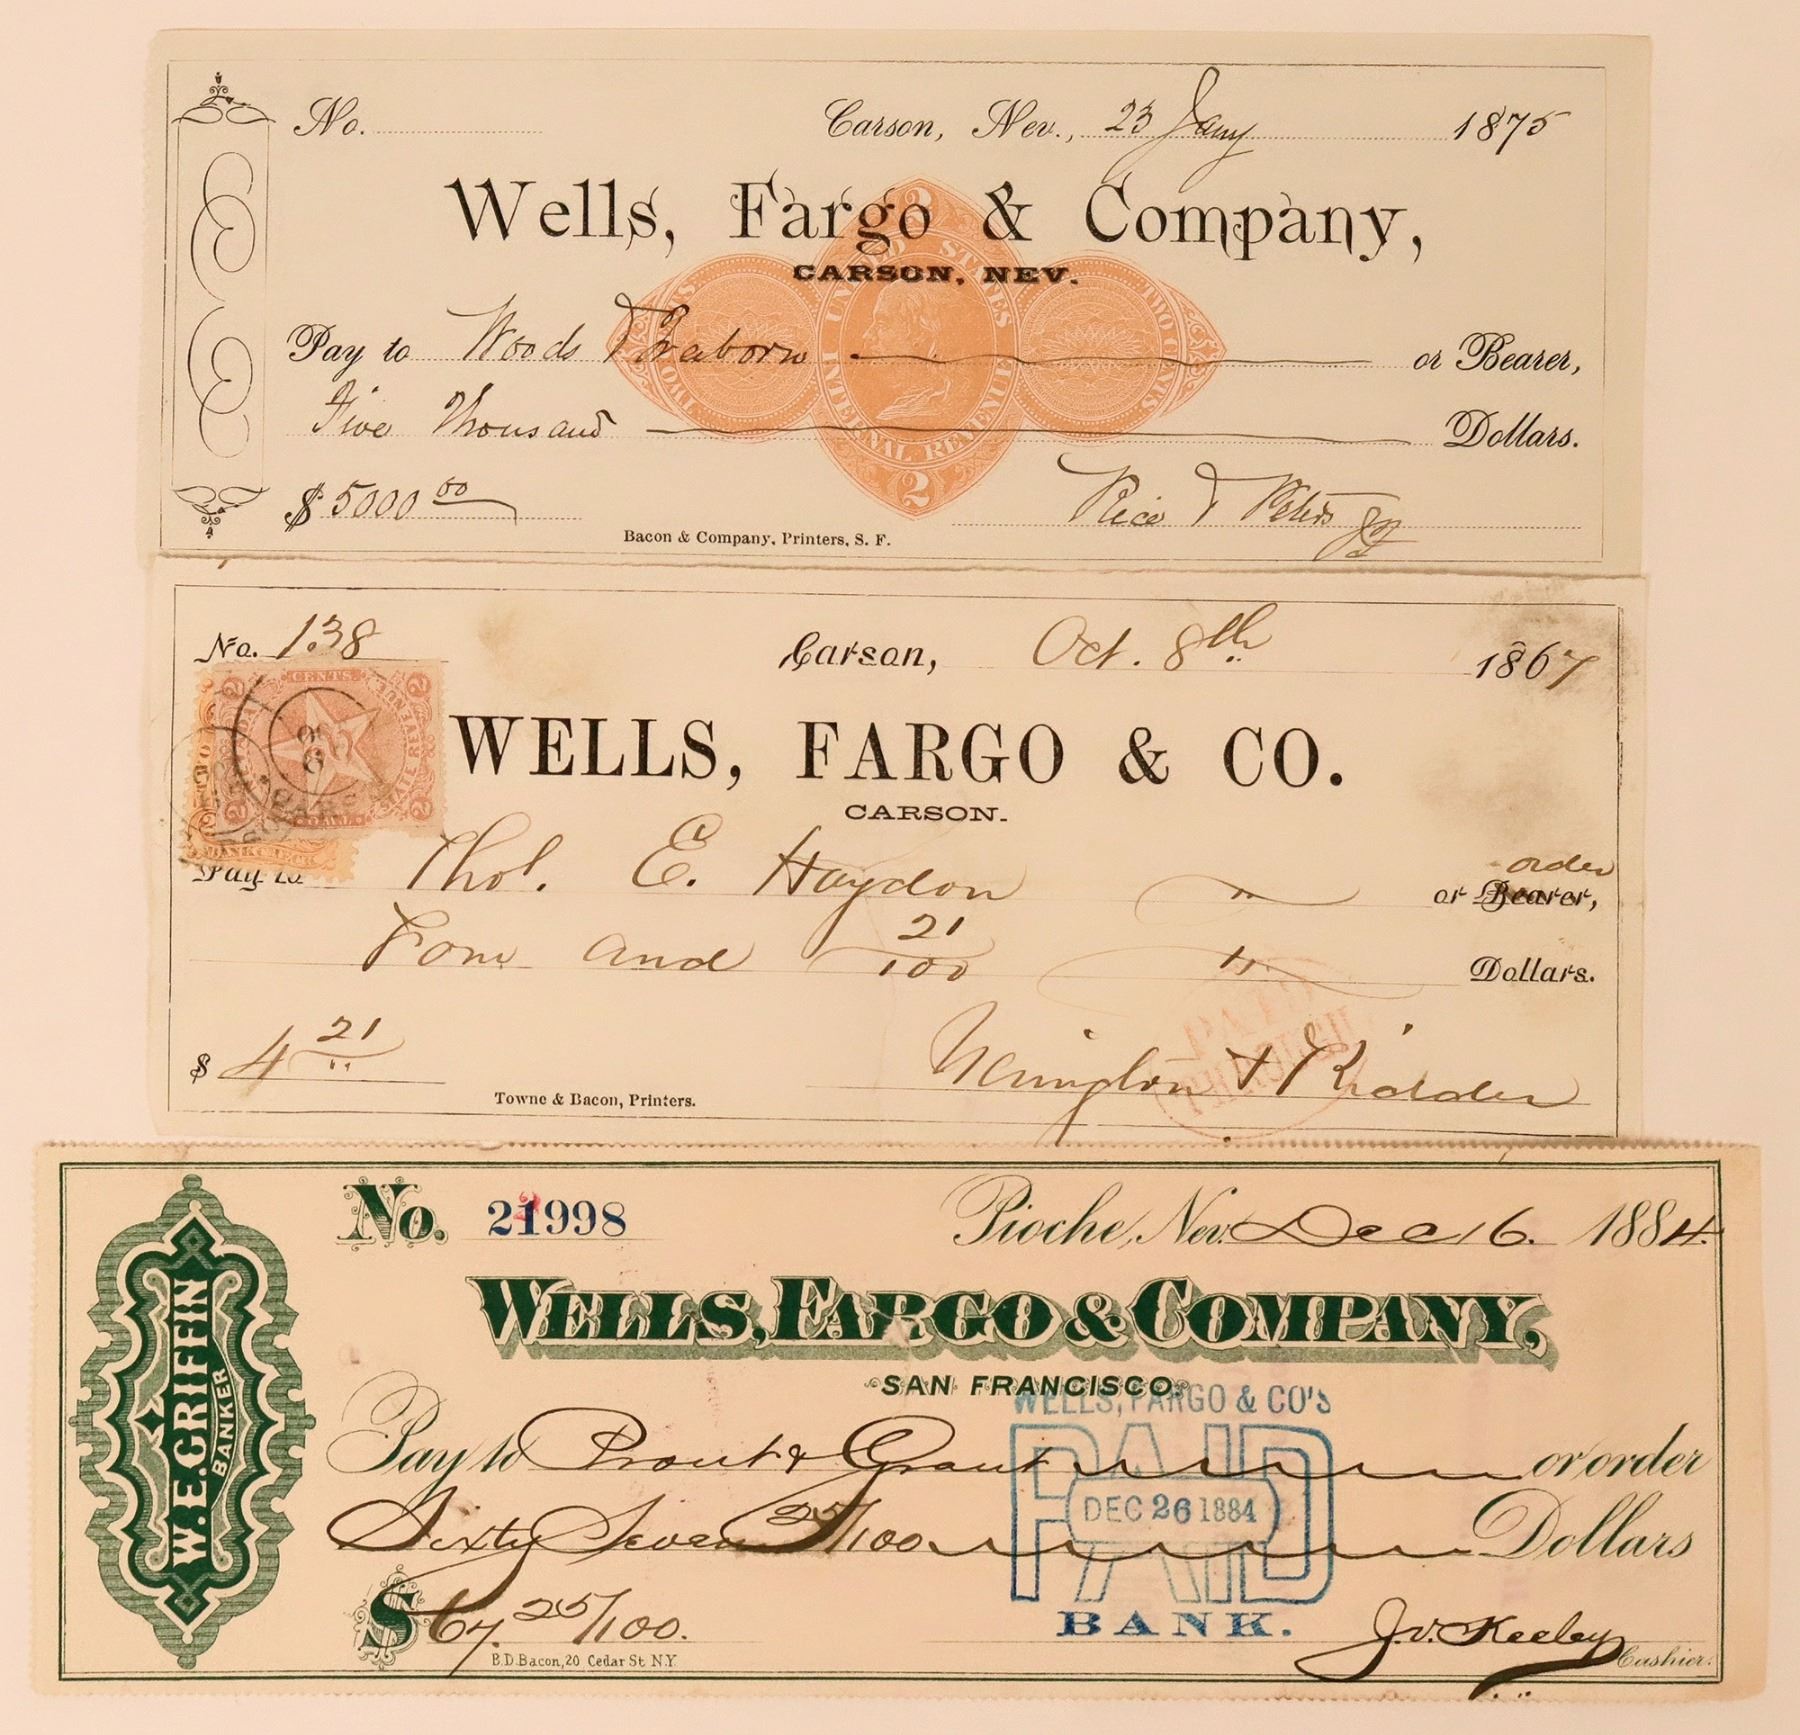 No. Carson, Nev., 23 Jany 1875
Wells, Fargo & Company,
CARSON, NEV.
Pay to Woods & Freeborn or Bearer,
Five Thousand Dollars.
$ 5000 00
Rice & Peters
Bacon & Company, Printers, S. F.
2
UNITED STATES
INTERNAL REVENUE
TWO CTS.
TWO CTS.
2
No. 138 Carson, Oct. 8th 1867
WELLS, FARGO & CO.
CARSON.
2 CENTS 2
STATE REVENUE
2 TWO 2
BANK CHECK
Pay to Thos. E. Haydon or Bearer, order
Four and 21/100 Dollars.
$ 4 21
PAID
& Ridder
Towne & Bacon, Printers.
W.E. GRIFFIN
BANKER
No. 21998 Pioche, Nev. Dec 16. 1884.
WELLS, FARGO & COMPANY,
SAN FRANCISCO.
Pay to Prout & Grant or order
Sixty Seven 25/100 Dollars
$ 67. 25/100.
WELLS, FARGO & CO'S
PAID
DEC 26 1884
PAID
BANK.
J.V. Keeley Cashier.
B.D. Bacon, 20 Cedar St. N.Y.